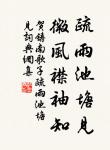 疏雨池塘見
微風襟袖知
賀鑄南歌子疏雨池塘
見詞典網集